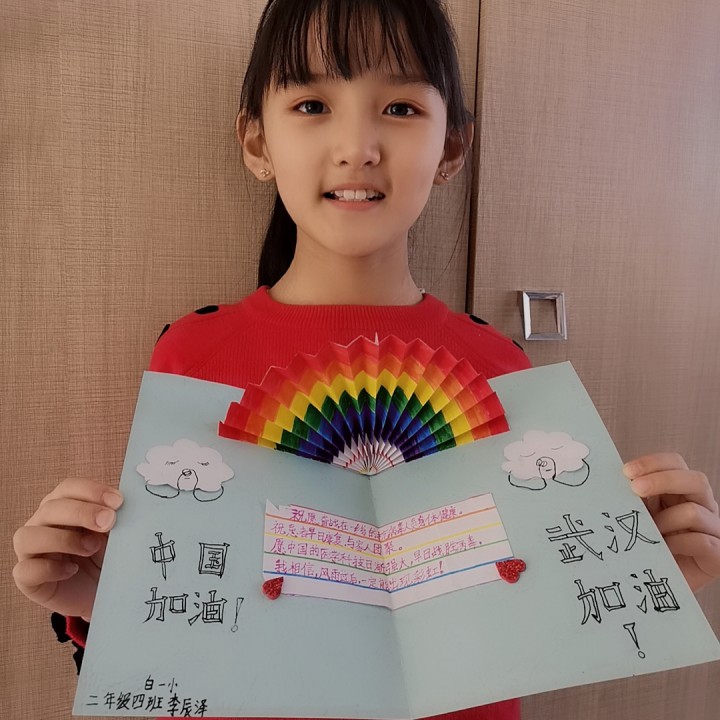 中国
加油!
祝愿奋战在一线的医护人员身体健康。
祝患者早日康复与家人团聚。
愿中国的医学科技日渐强大,早日战胜病毒。
我相信,风雨过后一定能出现彩虹!
武汉
加油
!
白一小
二年级四班李辰泽